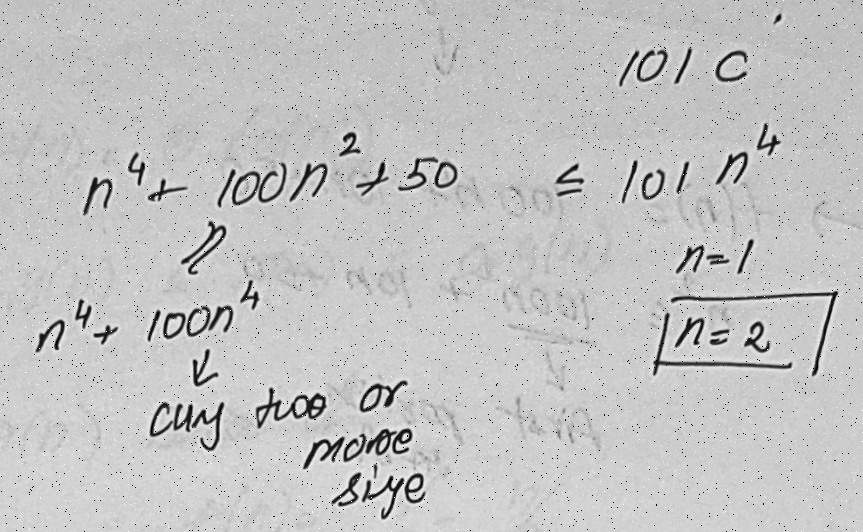 101 C
n⁴ + 100n² + 50 ≤ 101 n⁴
n=1
n⁴ + 100n⁴
n=2
two or
more
size